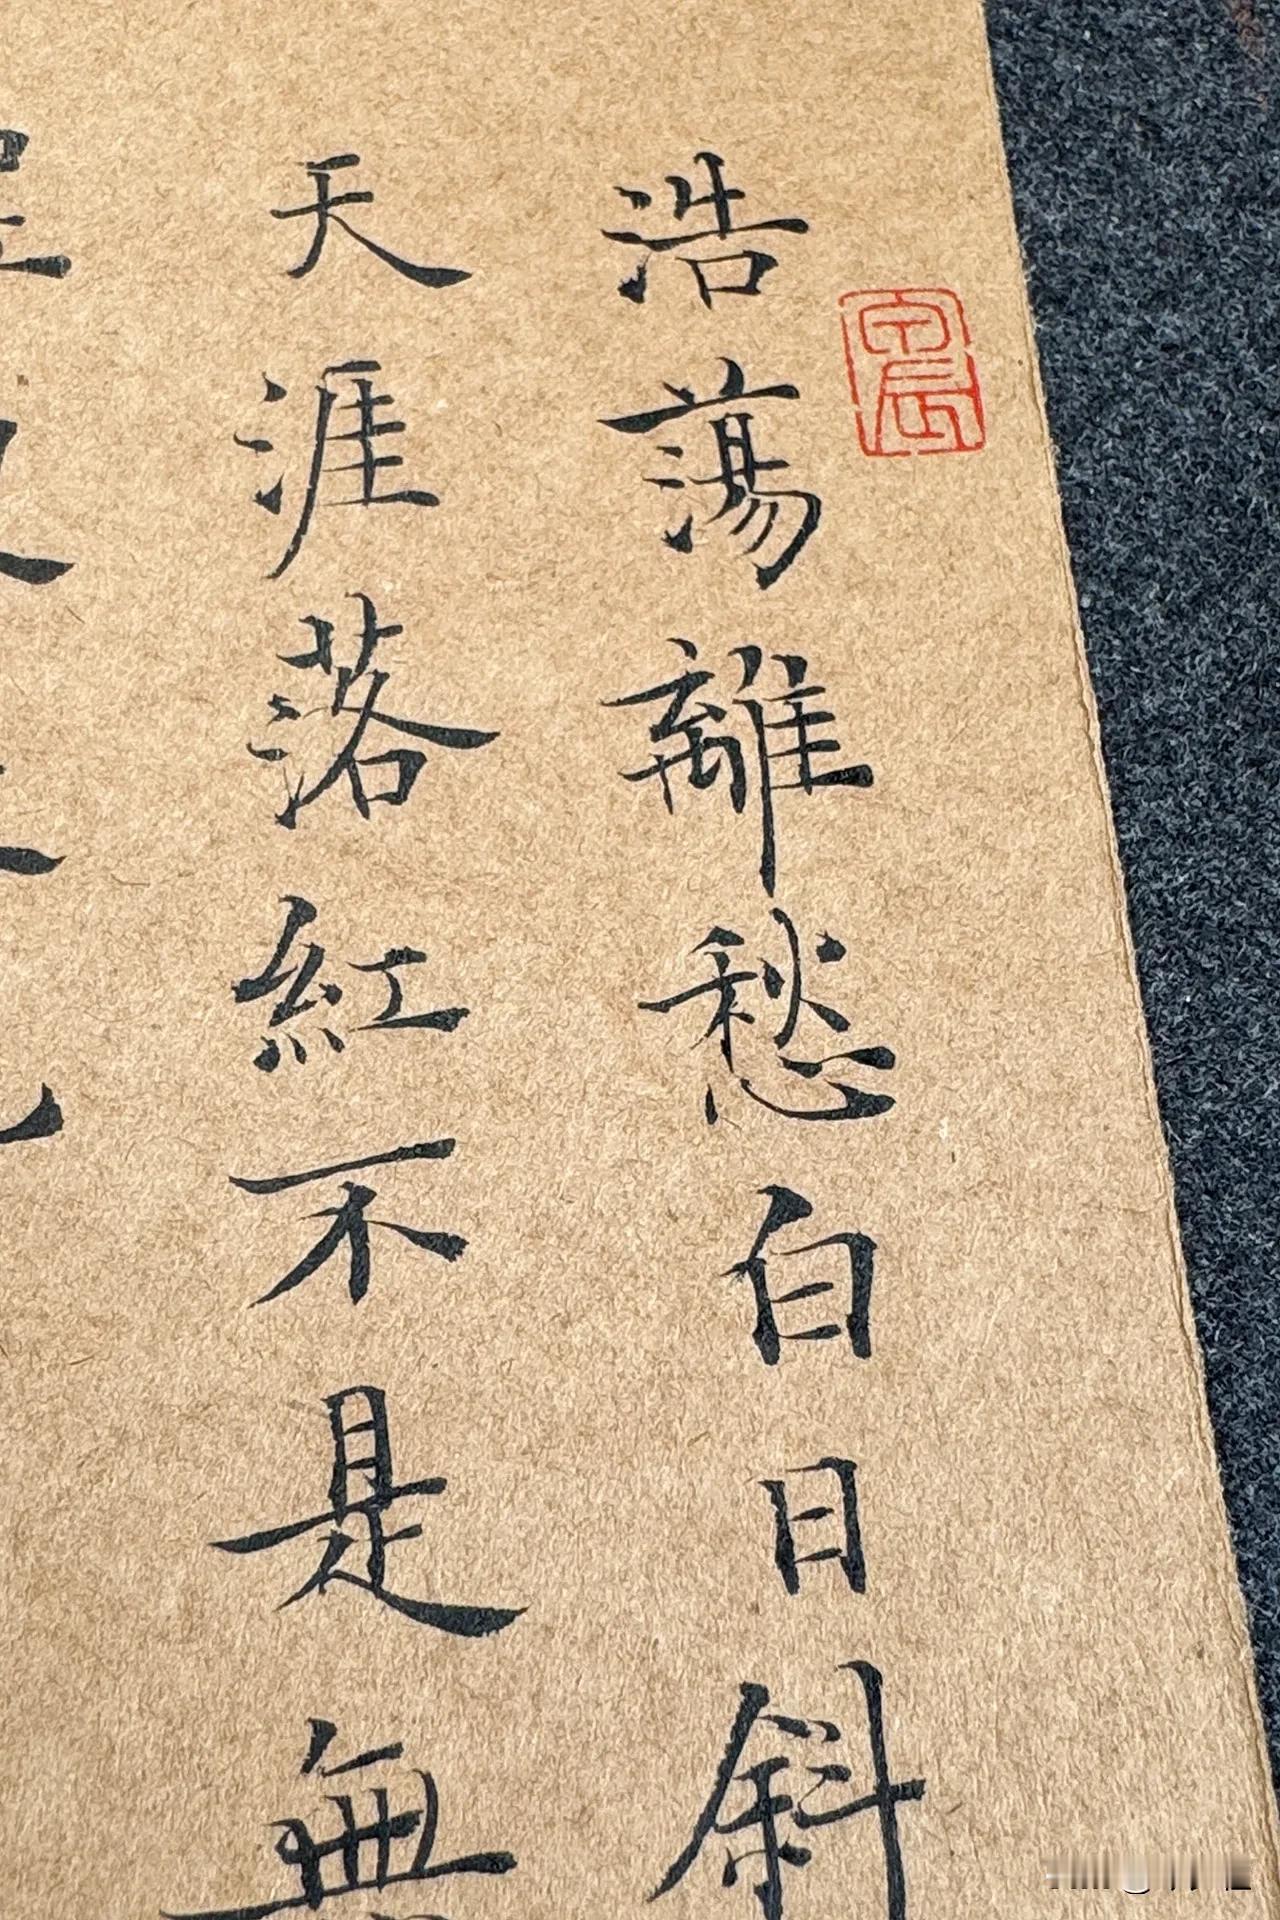 浩蕩離愁白日斜
天涯落紅不是無